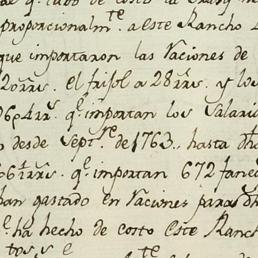 proporcionalmte. a este Rancho
que importaron las Raciones de
20rrs. el frisol a 28rrs. y los
qe. importan los Salari
o desde Septre. de 1763.. hasta dh
qe. importan 672 faneg
han gastado en Raciones para dh
qe. ha hecho de costo este Ranch